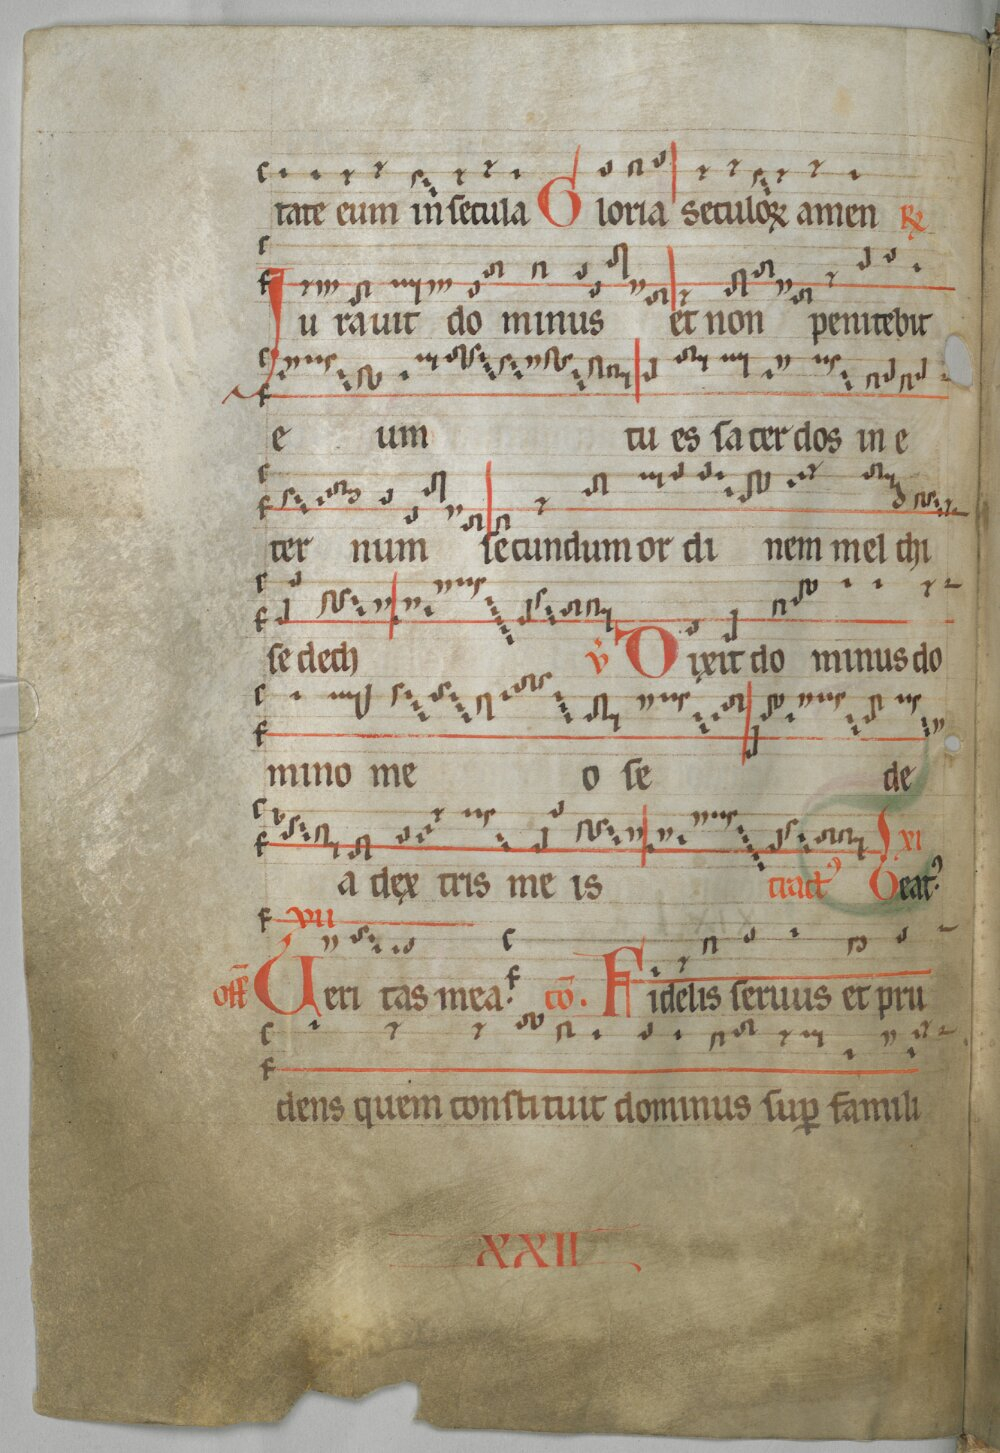 tate eum in secula Gloria seculoꝝ amen ℞
Iu rauit do minus et non penitebit
e um tu es sa cer dos in e
ter num secundum or di nem mel chi
se dech ℣ Dixit do minus do
mino me o se de
a dex tris me is tract⁹ Beat⁹ xi
vii
off̄ Ueri tas mea. cō. Fidelis seruus et pru
dens quem constituit dominus suꝑ famili
XXII